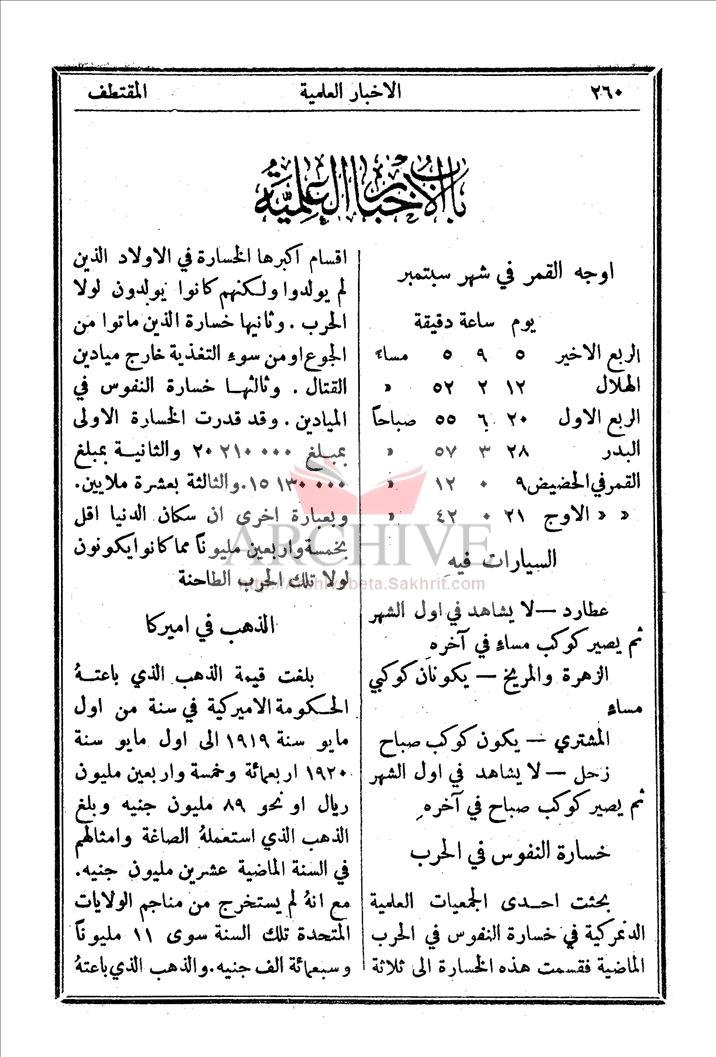 ٢٦٠
الاخبار العلمية
المقتطف
باب الاخبار العلمية
اوجه القمر في شهر سبتمبر
يوم ساعة دقيقة
الربع الاخير ٥ ٩ ٥ مساءً
الهلال ١٢ ٢ ٥٢ «
الربع الاول ٢٠ ٦ ٥٥ صباحاً
البدر ٢٨ ٣ ٥٧ «
القمر في الحضيض ٩ ٠ ١٢ «
« « الاوج ٢١ ٠ ٤٢ «
السيارات فيهِ
عطارد — لا يشاهد في اول الشهر
ثم يصير كوكب مساءٍ في آخرهِ
الزهرة والمريخ — يكونان كوكبي
مساءٍ
المشتري — يكون كوكب صباح
زحل — لا يشاهد في اول الشهر
ثم يصير كوكب صباح في آخرهِ
خسارة النفوس في الحرب
بحثت احدى الجمعيات العلمية
الدنمركية في خسارة النفوس في الحرب
الماضية فقسمت هذه الخسارة الى ثلاثة
اقسام اكبرها الخسارة في الاولاد الذين
لم يولدوا ولكنهم كانوا يولدون لولا
الحرب . وثانيها خسارة الذين ماتوا من
الجوع او من سوء التغذية خارج ميادين
القتال . وثالثها خسارة النفوس في
الميادين . وقد قدرت الخسارة الاولى
بمبلغ ٢٠٢١٠٠٠٠ والثانية بمبلغ
١٥١٣٠٠٠٠ . والثالثة بعشرة ملايين .
وبعبارة اخرى ان سكان الدنيا اقل
بخمسة واربعين مليوناً مما كانوا يكونون
لولا تلك الحرب الطاحنة
الذهب في اميركا
بلغت قيمة الذهب الذي باعتهُ
الحكومة الاميركية في سنة من اول
مايو سنة ١٩١٩ الى اول مايو سنة
١٩٢٠ اربعمائة وخمسة واربعين مليون
ريال او نحو ٨٩ مليون جنيه وبلغ
الذهب الذي استعملهُ الصاغة وامثالهم
في السنة الماضية عشرين مليون جنيه .
مع انهُ لم يستخرج من مناجم الولايات
المتحدة تلك السنة سوى ١١ مليوناً
وسبعمائة الف جنيه . والذهب الذي باعتهُ
ARCHIVE